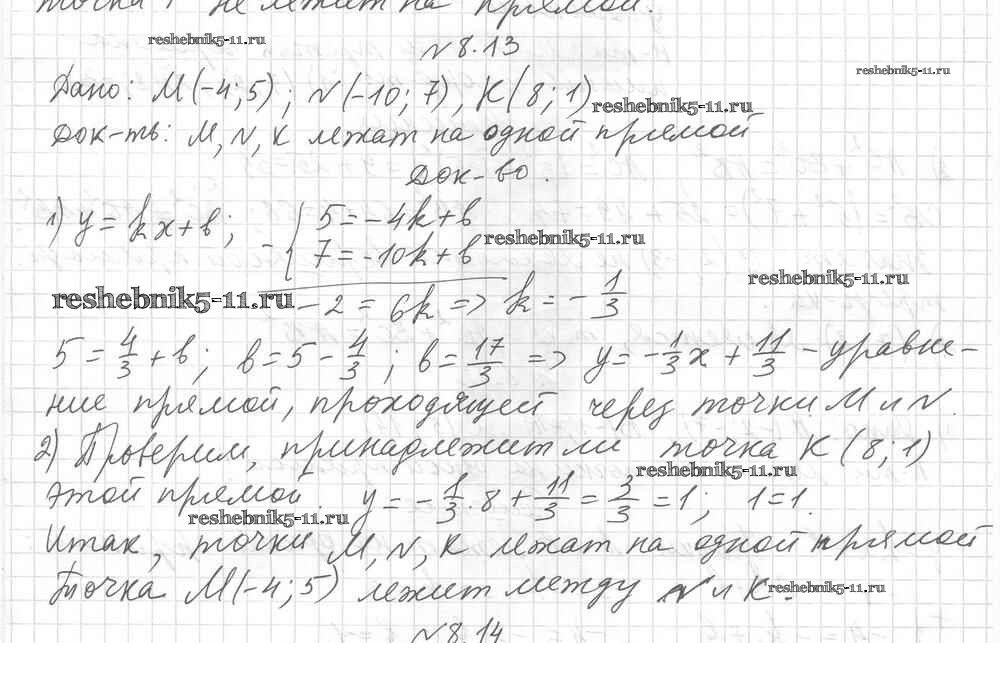 точка не лежит на прямой.
№8.13
reshebnik5-11.ru
reshebnik5-11.ru
Дано: M(-4;5); N(-10; 7), K(8; 1)
reshebnik5-11.ru
Док-ть: M, N, K лежат на одной прямой
Док-во.
1) y = kx + b; - { 5 = -4k + b
7 = -10k + b
reshebnik5-11.ru
reshebnik5-11.ru
reshebnik5-11.ru
-2 = 6k => k = -1/3
5 = 4/3 + b; b = 5 - 4/3; b = 17/3 => y = -1/3 x + 11/3 - уравне-
ние прямой, проходящей через точки M и N.
2) Проверим, принадлежит ли точка K (8; 1)
reshebnik5-11.ru
этой прямой. y = -1/3 · 8 + 11/3 = 3/3 = 1; 1 = 1.
reshebnik5-11.ru
Итак, точки M, N, K лежат на одной прямой
Точка M(-4; 5) лежит между N и K.
reshebnik5-11.ru
№8.14